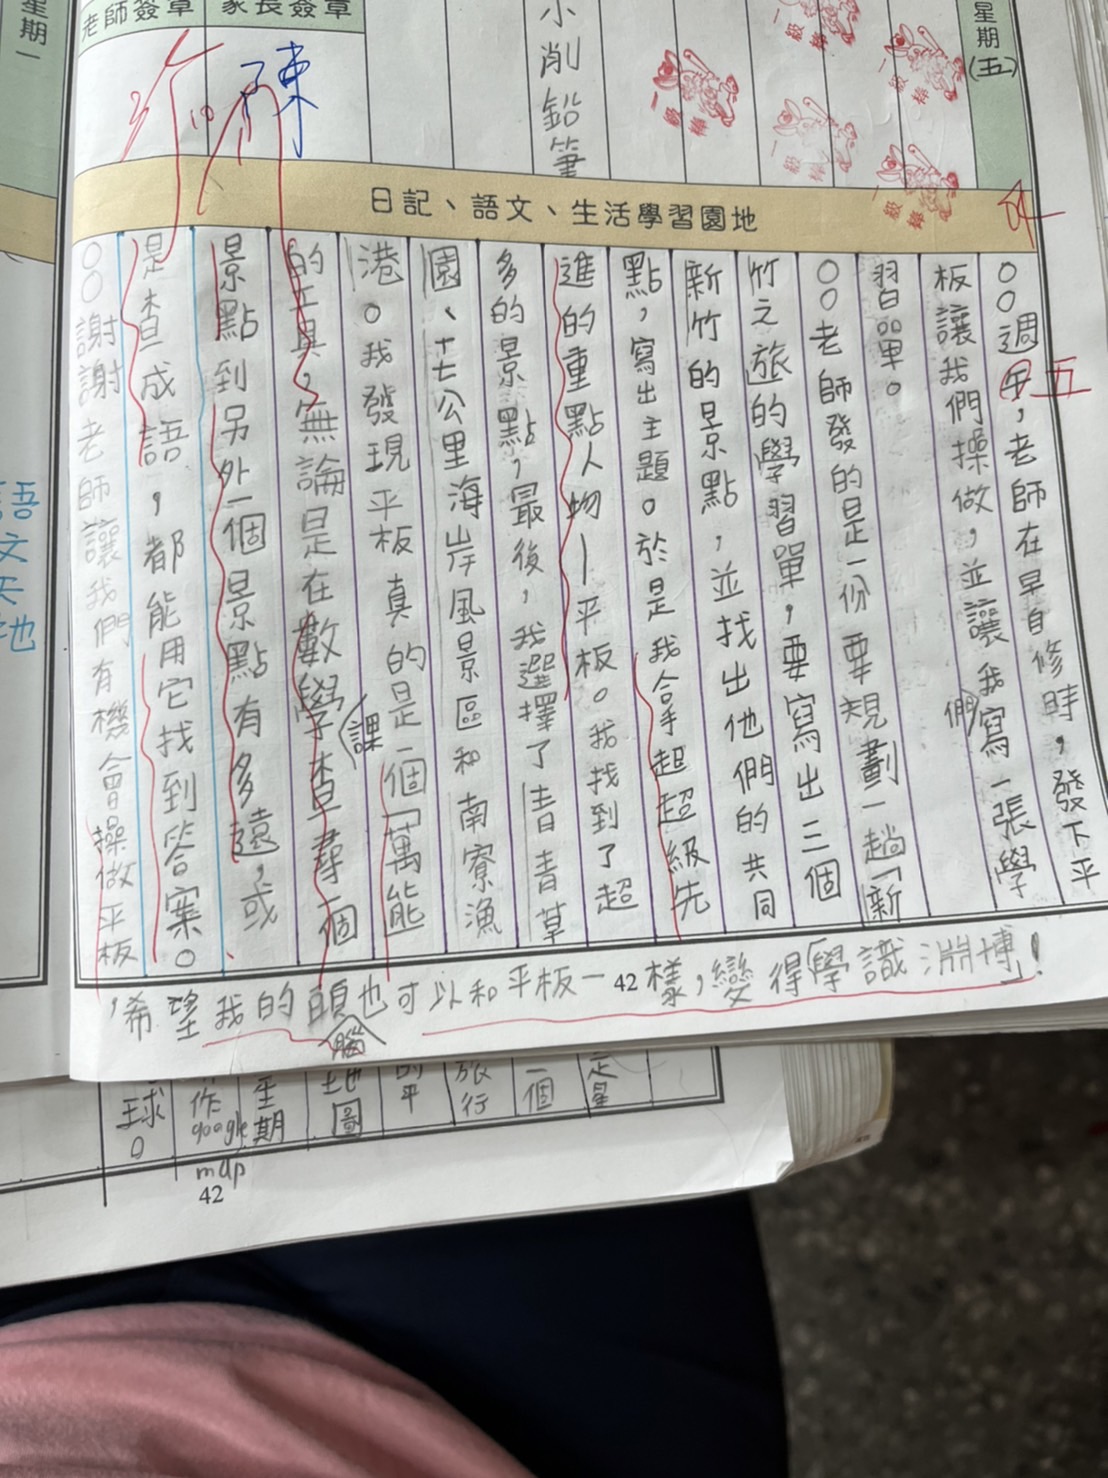 星期一
老師簽章
家長簽章
陳
小削鉛筆
星期(五)
一級棒
一級棒
一級棒
一級棒
一級棒
日記、語文、生活學習園地
○○週五,老師在早自修時,發下平
五
板讓我們操做,並讓我們寫一張學
習單。
○○老師發的是一份要規劃一趟「新
竹之旅的學習單,要寫出三個
新竹的景點,並找出他們的共同
點,寫出主題。於是我拿超超級先
進的重點人物—平板。我找到了超
多的景點,最後,我選擇了青青草
園、十七公里海岸風景區和南寮漁
港。我發現平板真的是一個「萬能
的工具,無論是在數學課查尋一個
景點到另外一個景點有多遠,或
是查成語,都能用它找到答案。
○○謝謝老師讓我們有機會操做平板
,希望我的頭腦也可以和平板一樣,變得「學識淵博」!
42
語文天地
是星
一個
旅行
的平
地圖
星期
作google map
球。
42